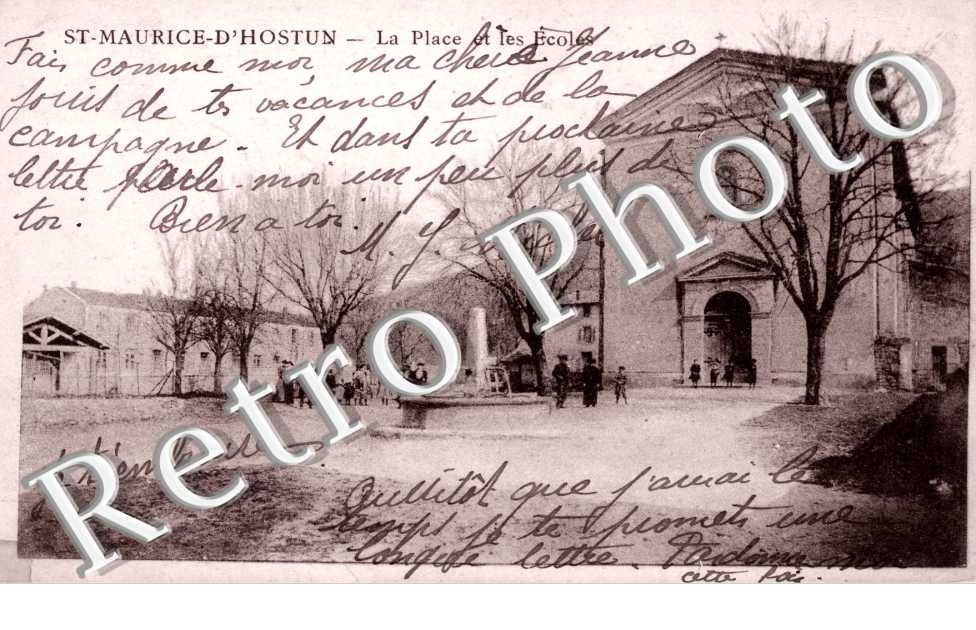 ST-MAURICE-D'HOSTUN — La Place et les Écoles
Fais comme moi, ma chère Jeanne
jouis de tes vacances et de la
campagne. Et dans ta prochaine
lettre parle-moi un peu plus de
toi. Bien a toi.
M. y.
Retro Photo
Aussitôt que j'aurai le
temps je te promets une
longue lettre. Pardonne-moi
cette fois.